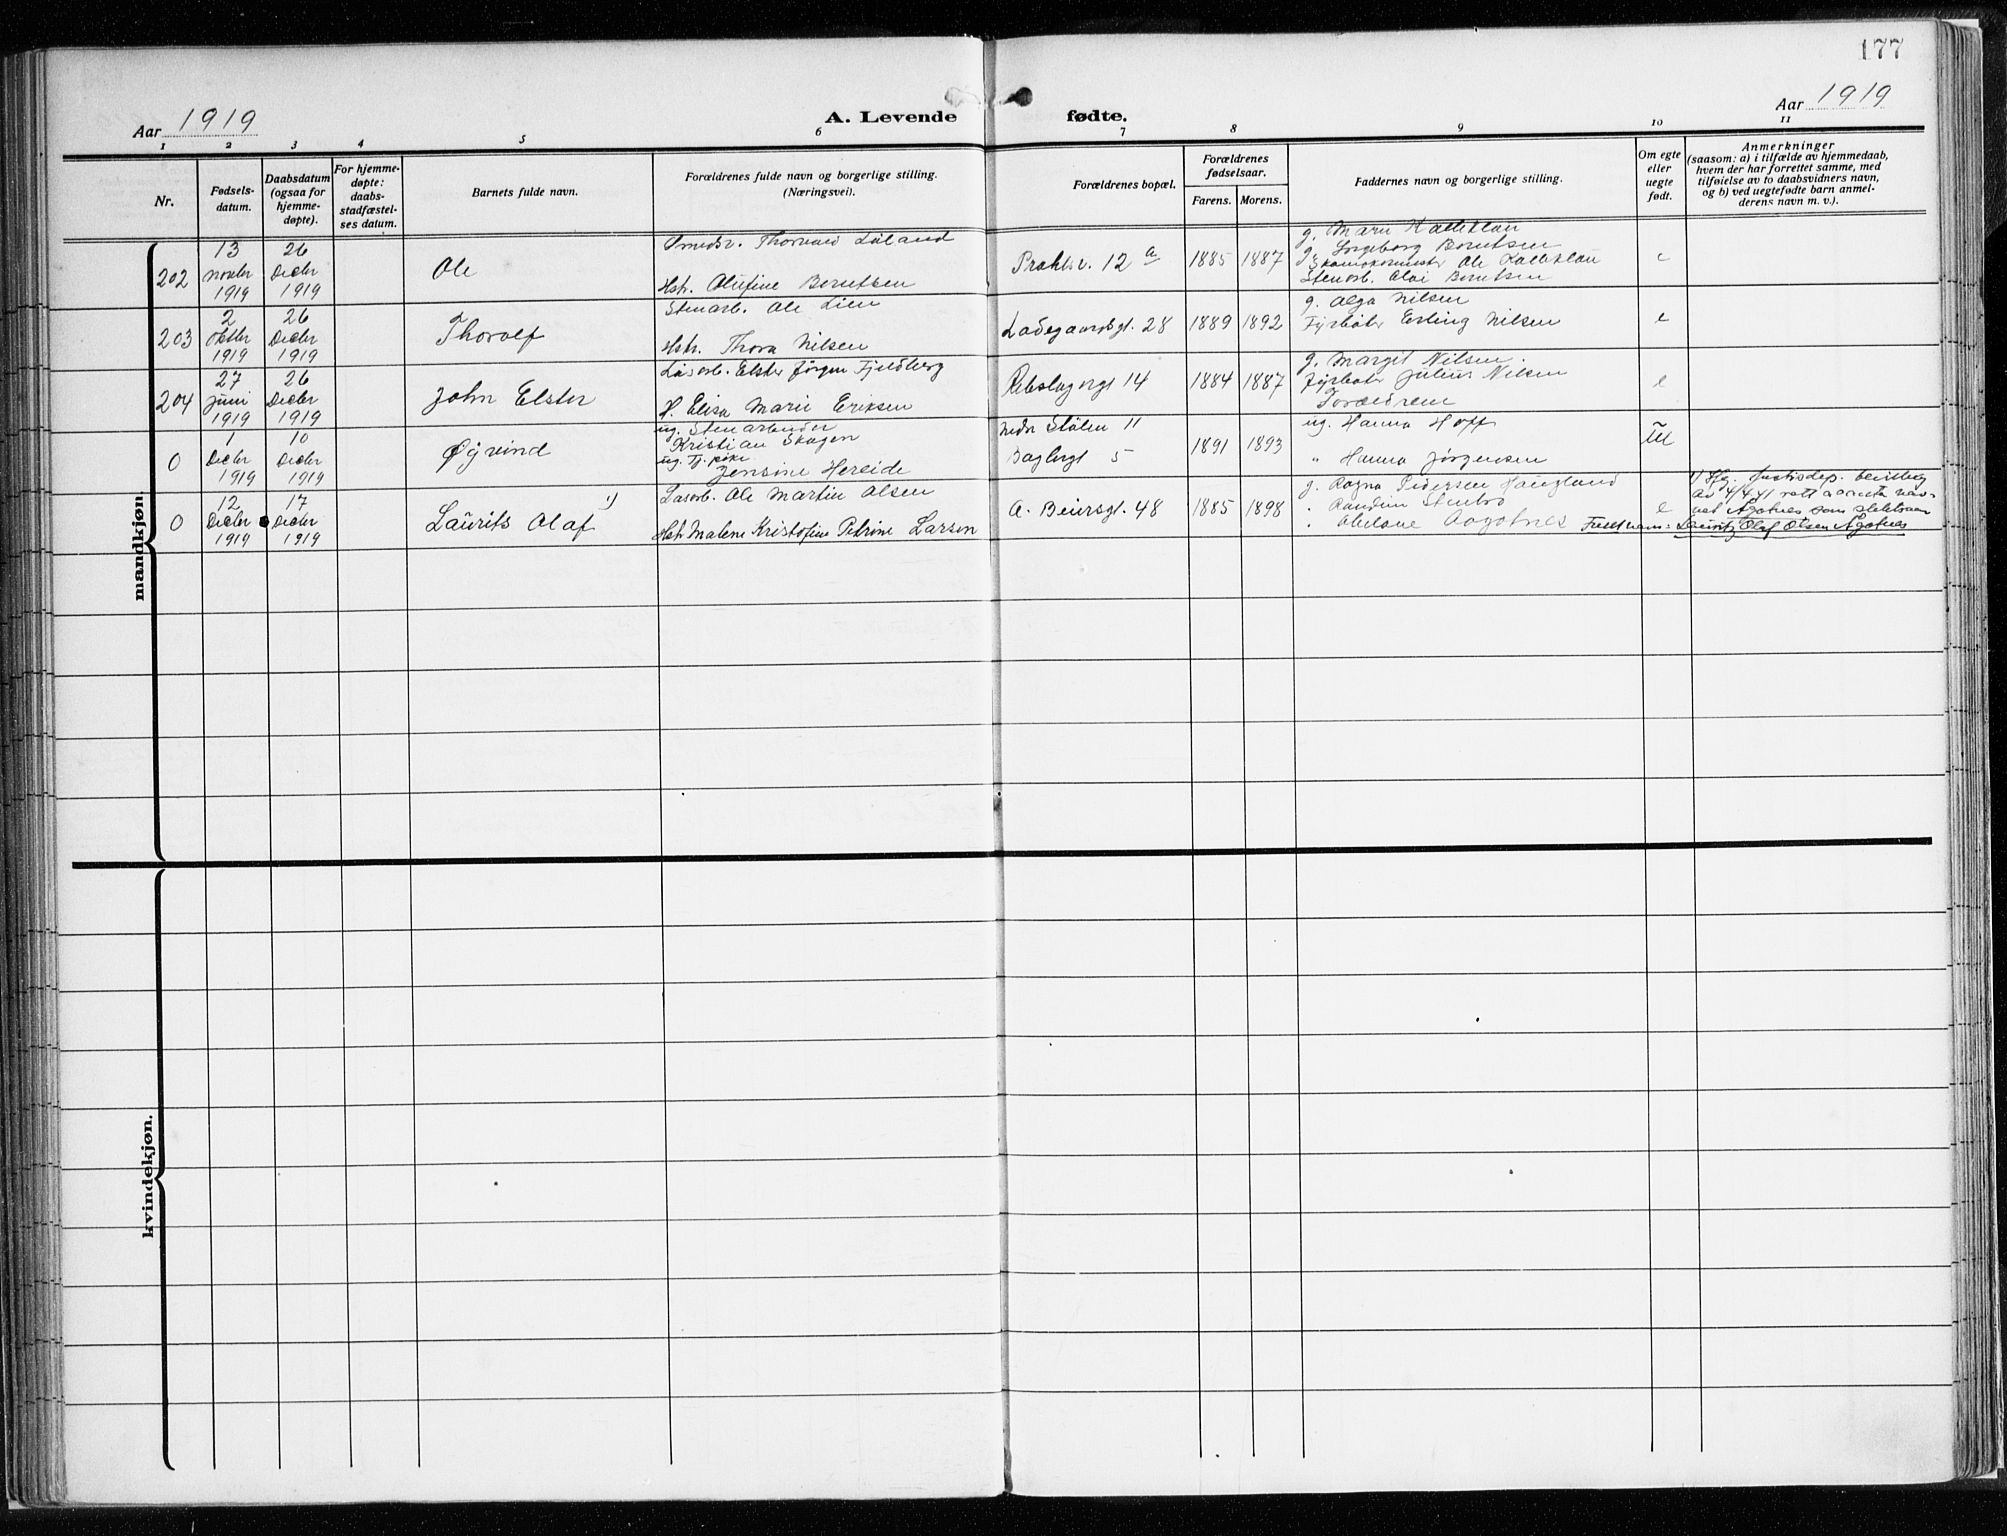 177
Aar 1919
A. Levende fødte.
Aar 1919
1 2 3 4 5 6 7 8 9 10 11
Nr.
Fødsels-
datum.
Daabsdatum
(ogsaa for
hjemme-
døpte).
For hjemme-
døpte:
daabs-
stadfæstel-
ses datum.
Barnets fulde navn.
Forældrenes fulde navn og borgerlige stilling.
(Næringsvei).
Forældrenes bopæl.
Forældrenes
fødselsaar.
Farens. Morens.
Faddernes navn og borgerlige stilling.
Om egte
eller
uegte
født.
Anmerkninger
(saasom: a) i tilfælde av hjemmedaab,
hvem der har forrettet samme, med
tilføielse av to daabsvidners navn,
og b) ved uegtefødte barn anmel-
derens navn m. v.).
mandkjøn.
202
13
Novbr
1919
26
Decbr
1919
Ole
Smedsv. Thorvald Løland
Hstr. Olufine Berntsen
Prahlsv. 12 a
1885 1887
g. Marie
g. Ingeborg Berntsen
Ole
Stenarb. Olai Berntsen
e
203
2
Oktbr
1919
26
Decbr
1919
Thorolf
Stenarb. Ole Lien
Hstr. Thora Nilsen
Ladegaardsgt. 28
1889 1892
g. Olga Nilsen
Fyrbøter Erling Nilsen
e
204
27
Juni
1919
26
Decbr
1919
John Elster
Løsarb. Elster Jørgen Fjeldberg
H. Elisa Marie Eriksen
Rebslagergt 14
1884 1887
g. Margit Nilsen
Fyrbøter Julius Nilsen
Forældrene
e
0
1
Decbr
1919
10
Decbr
1919
Øyvind
ug. Stenarbeider
Kristian Skagen
ug. Tj. pike
Jensine Hereide
Nedr Stølen 11
Baglergt 5
1891 1893
ug. Hanna Hoff
" Hanna Jørgensen
0
12
Decbr
1919
17
Decbr
1919
Laurits Olaf 1)
Løsarb. Ole Martin Olsen
Hstr Malene Kristofine Petrine Larsen
A. Beiersgt. 48
1885 1898
g. Ragna Pedersen Haugland
" Randine Stenbro
" Abelone Aagotnes
e
1) Iflg. Justisdep. bevilling
av 4/4.41 rett a anta nav-
net Ågotnes som slektsnavn
Fuldt navn: Lauritz Olaf Olsen Ågotnes
kvindekjøn.